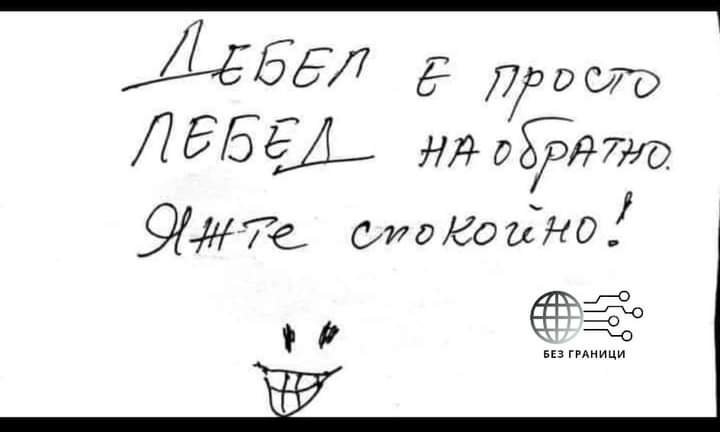 ДЕБЕЛ Е просто
ЛЕБЕД НАобратно.
Яжте спокойно!
БЕЗ ГРАНИЦИ